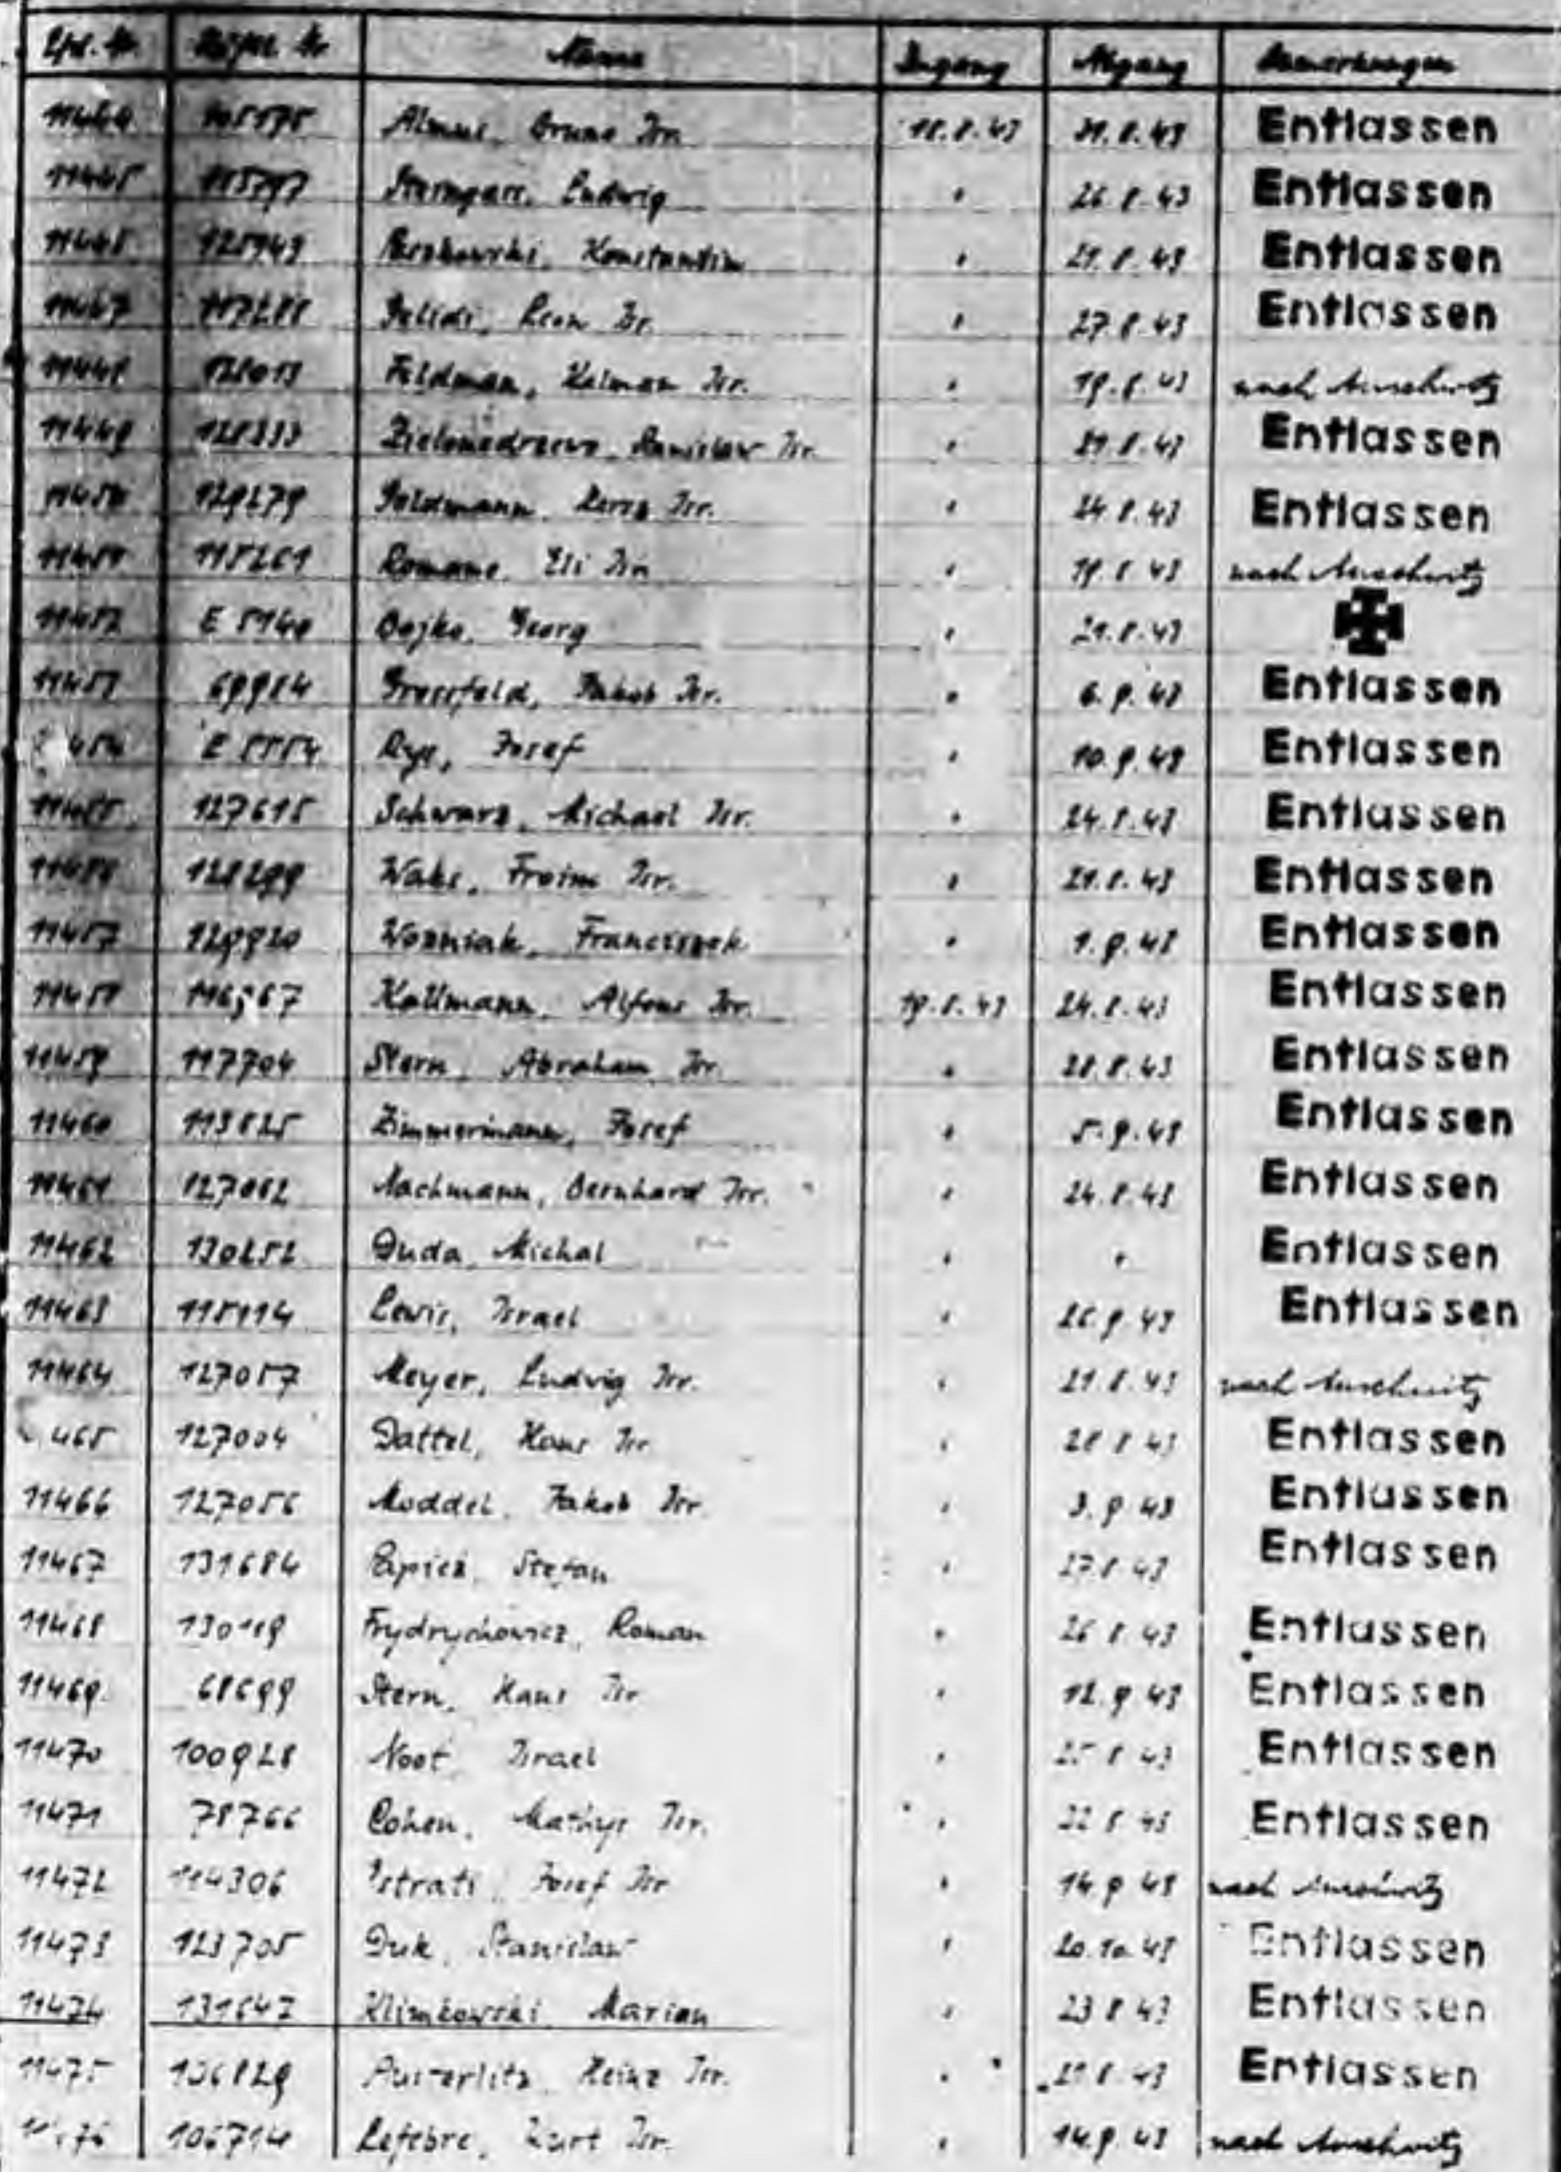 Lfd. Nr. Name Zugang Abgang Bemerkungen
105175 Bruno Isr. 18.8.43 Entlassen
11445 Ludwig " 26.8.43 Entlassen
Konstantin " Entlassen
11447 Leon Isr. " 27.8.43 Entlassen
Feldman, Kalman Isr. " 19.8.43 nach Auschwitz
11449 128333 Isr. " Entlassen
11450 129279 Isr. " 24.8.43 Entlassen
11451 Romano, Eli Isr. " 19.8.43 nach Auschwitz
11452 Bojko, Georg " 21.8.43
11453 69984 Grossfeld, Jakob Isr. " 6.9.43 Entlassen
Josef " 10.9.43 Entlassen
11455 127615 Schwarz, Michael Isr. " 24.8.43 Entlassen
11456 128299 Waks, Froim Isr. " 21.8.43 Entlassen
11457 129920 Wozniak, Franciszek " 1.9.43 Entlassen
11458 Kallmann, Alfons Isr. 19.8.43 24.8.43 Entlassen
11459 117704 Stern, Abraham Isr. " 28.8.43 Entlassen
11460 113825 Zimmermann, Josef " 5.9.43 Entlassen
11461 127062 Nachmann, Bernhard Isr. " 24.8.43 Entlassen
11462 130252 Duda, Michal " " Entlassen
11463 118114 Lewis, Israel " Entlassen
11464 127057 Meyer, Ludwig Isr. " 21.8.43 nach Auschwitz
465 127004 Dattel, Hans Isr. " 28.8.43 Entlassen
11466 127056 Moddel, Jakob Isr. " 3.9.43 Entlassen
11467 131684 Stefan " 27.8.43 Entlassen
11468 Frydrychowicz, Roman " 26.8.43 Entlassen
11469 68699 Stern, Hans Isr. " 12.9.43 Entlassen
11470 100928 Noot, Israel " 25.8.43 Entlassen
11471 78766 Cohen, Mathys Isr. " 22.8.43 Entlassen
11472 114306 Istrati, Josef Isr. " 14.9.43 nach Auschwitz
11473 123705 Duk, Stanislaw " 20.10.43 Entlassen
11474 131647 Klimkowski, Marian " 23.8.43 Entlassen
11475 106829 Austerlitz, Heinz Isr. " 21.8.43 Entlassen
106714 Lefebre, Kurt Isr. " 14.9.43 nach Auschwitz